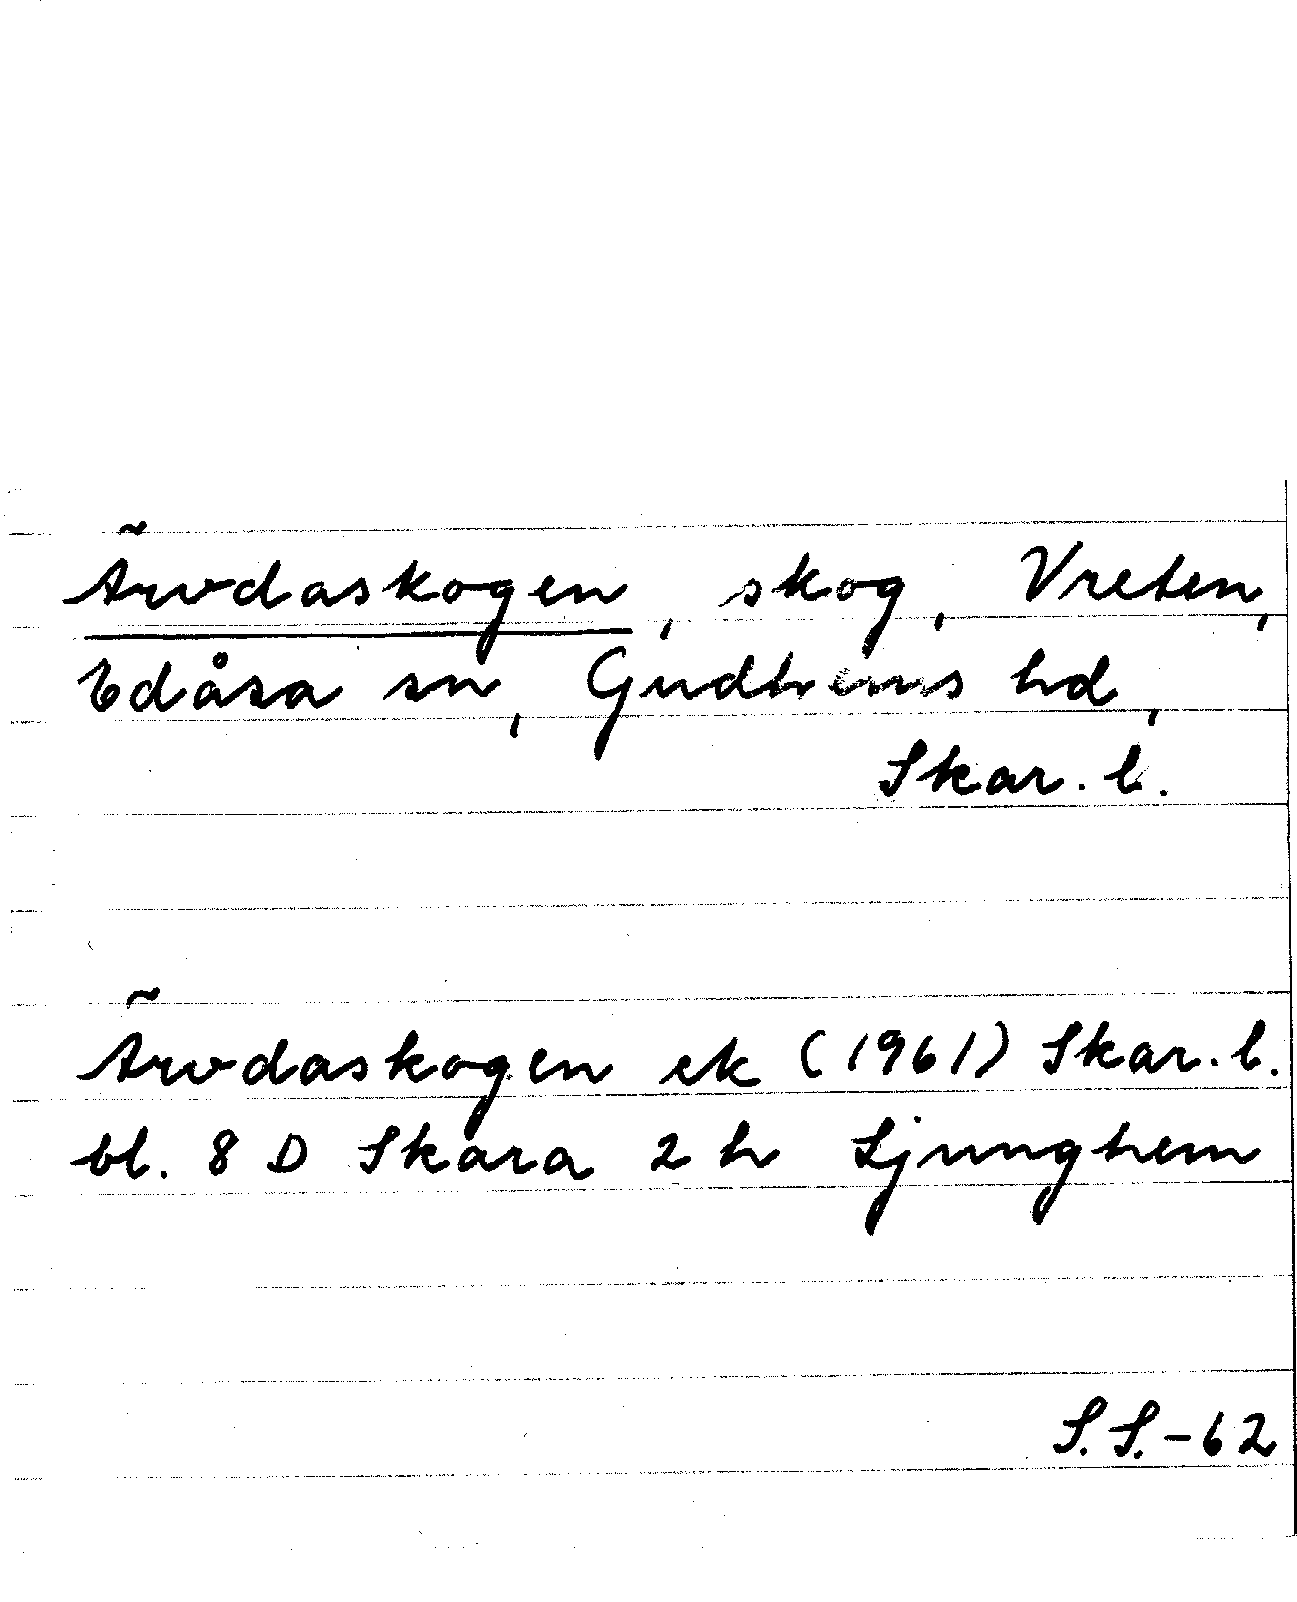 Ärvdaskogen, skog, Vreten,
Edåsa sn, Gudhems hd,
Skar. l.
Ärvdaskogen ek (1961) Skar. l.
bl. 8 D Skara 2 h Ljunghem
S.S.-62